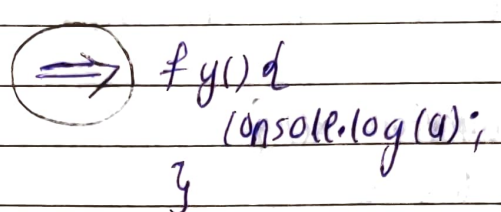 ⇒ f y() {
console.log(a);
}